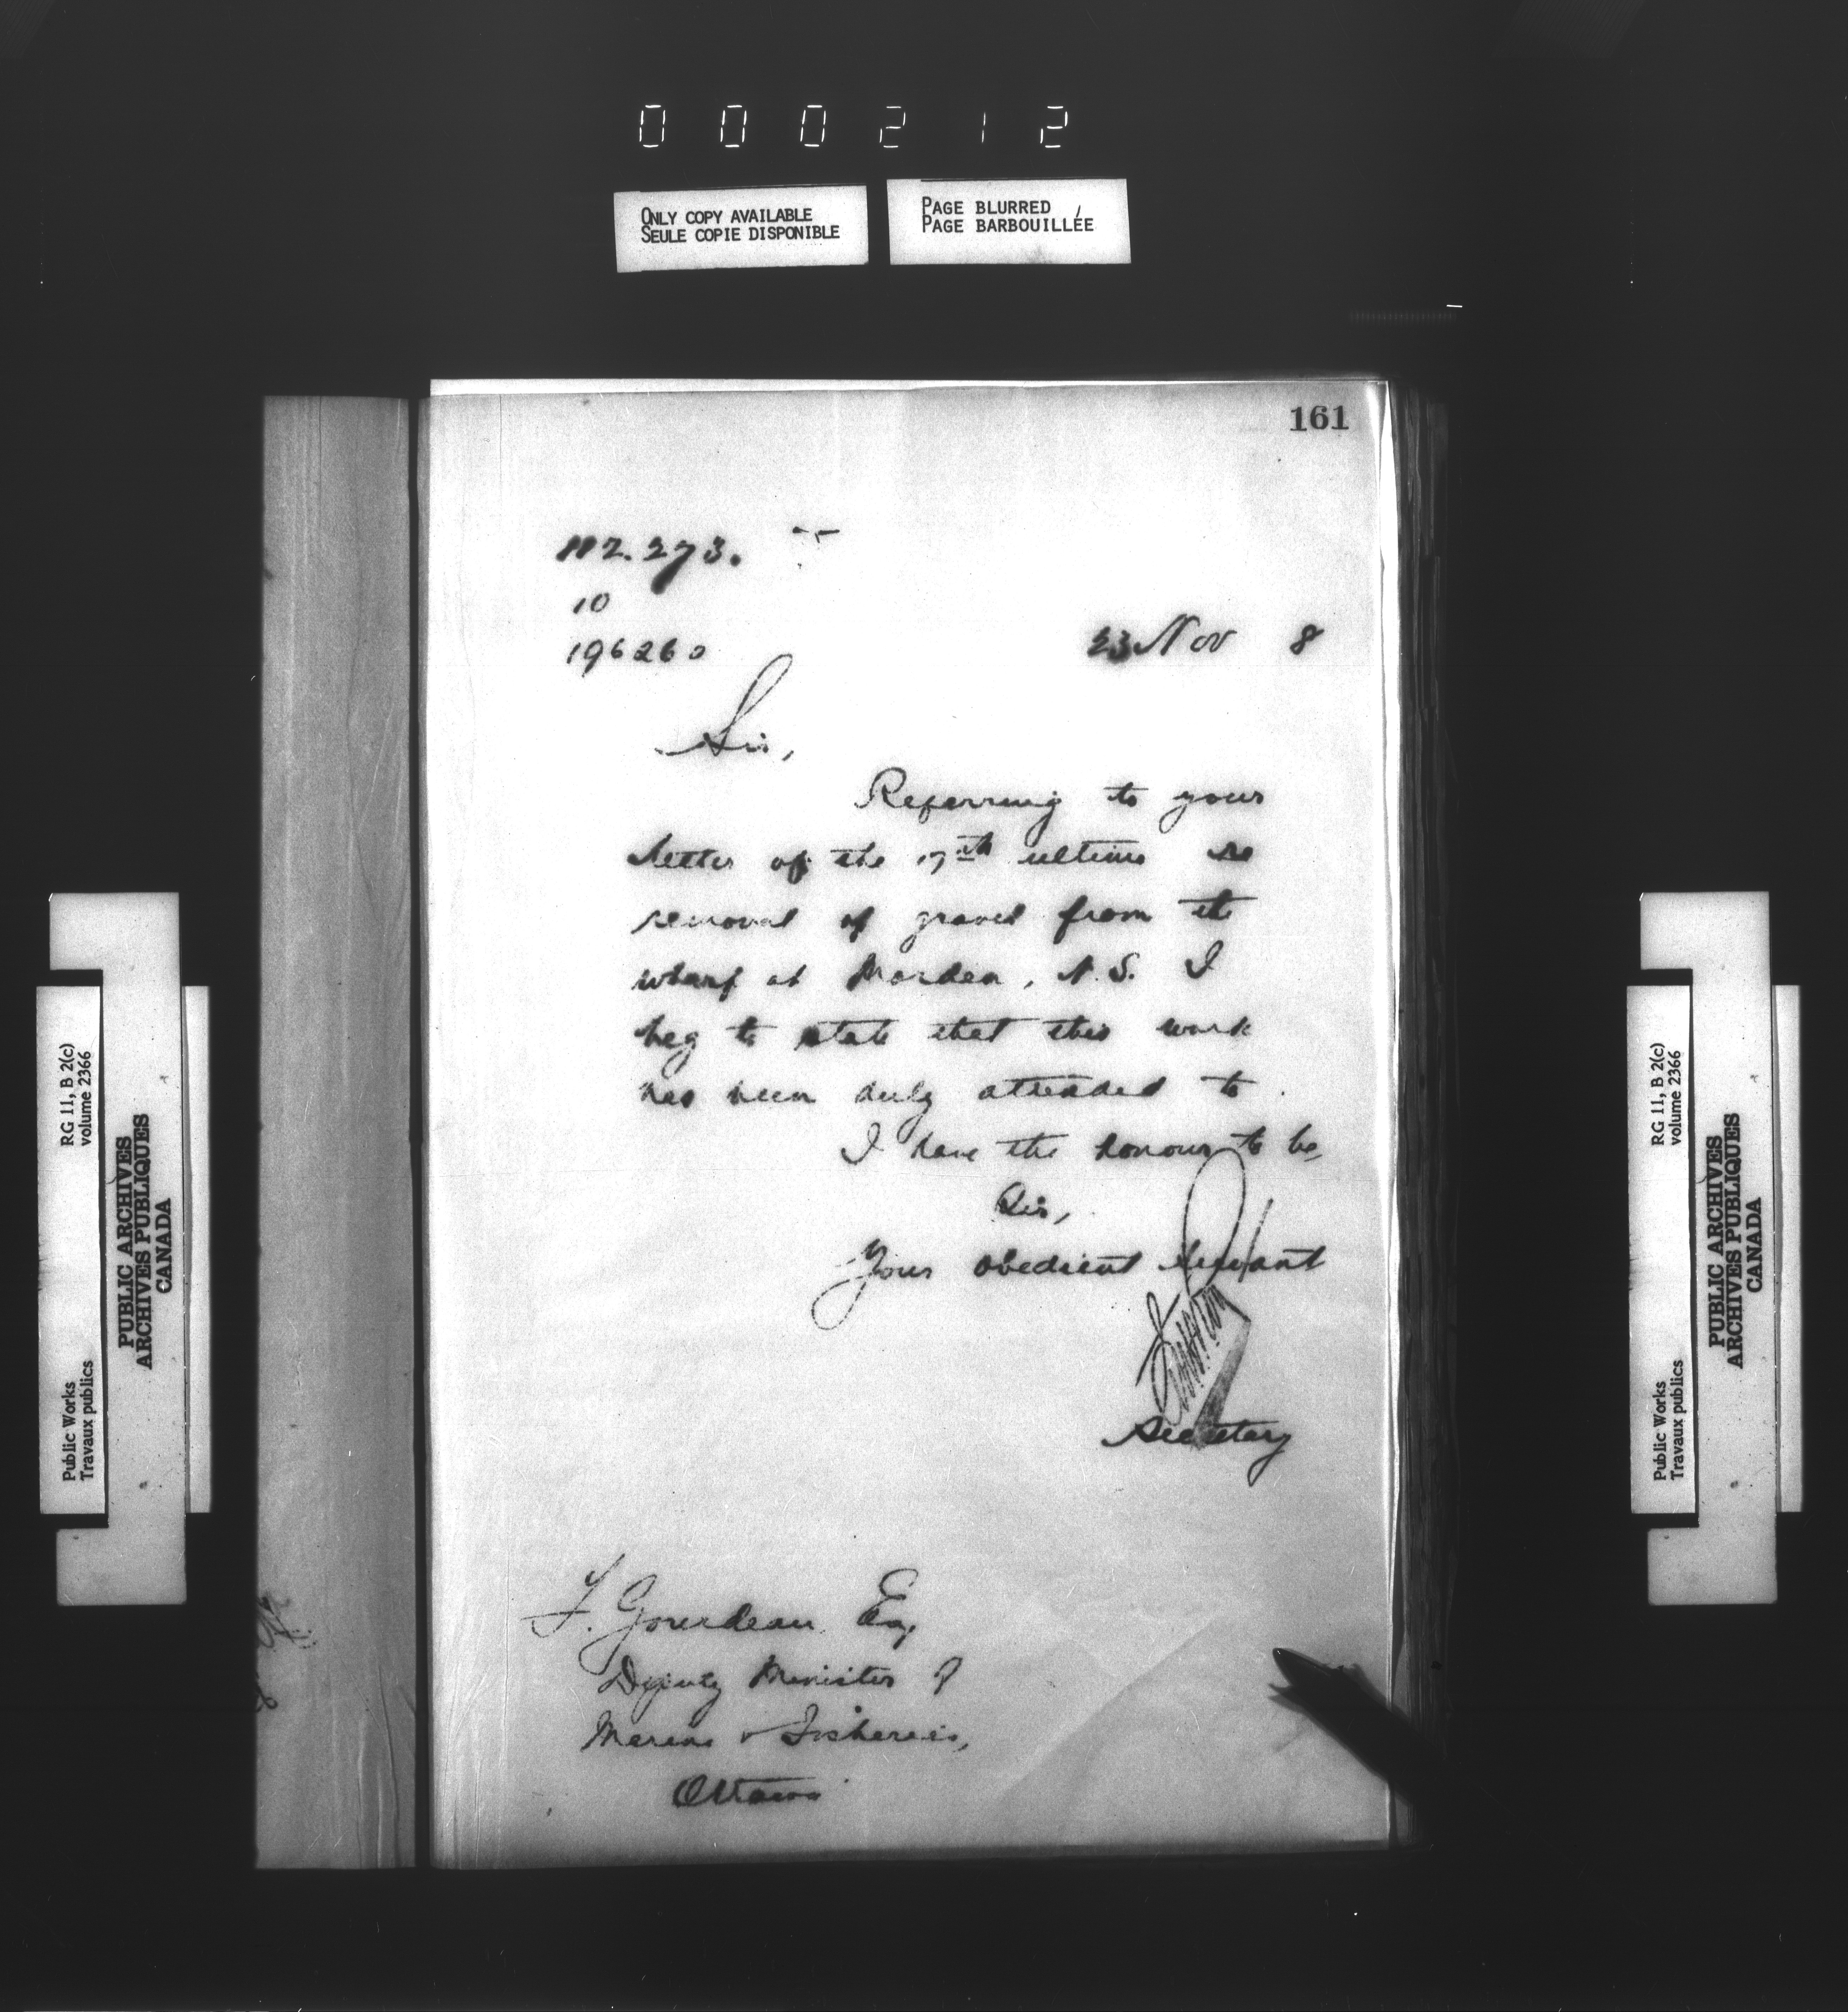 000212
ONLY COPY AVAILABLE
SEULE COPIE DISPONIBLE
PAGE BLURRED
PAGE BARBOUILLÉE
161
112.273.
10
196260
23 Nov 8
Sir,
Referring to your
letter of the 17th ultimo re
removal of gravel from the
wharf at Morden, N.S. I
beg to state that this work
has been duly attended to.
I have the honour to be,
Sir,
Your obedient servant
Secretary
F. Gourdeau Esq,
Deputy Minister of
Marine & Fisheries,
Ottawa
RG 11, B 2(c)
volume 2366
PUBLIC ARCHIVES
ARCHIVES PUBLIQUES
CANADA
Public Works
Travaux publics
RG 11, B 2(c)
volume 2366
PUBLIC ARCHIVES
ARCHIVES PUBLIQUES
CANADA
Public Works
Travaux publics